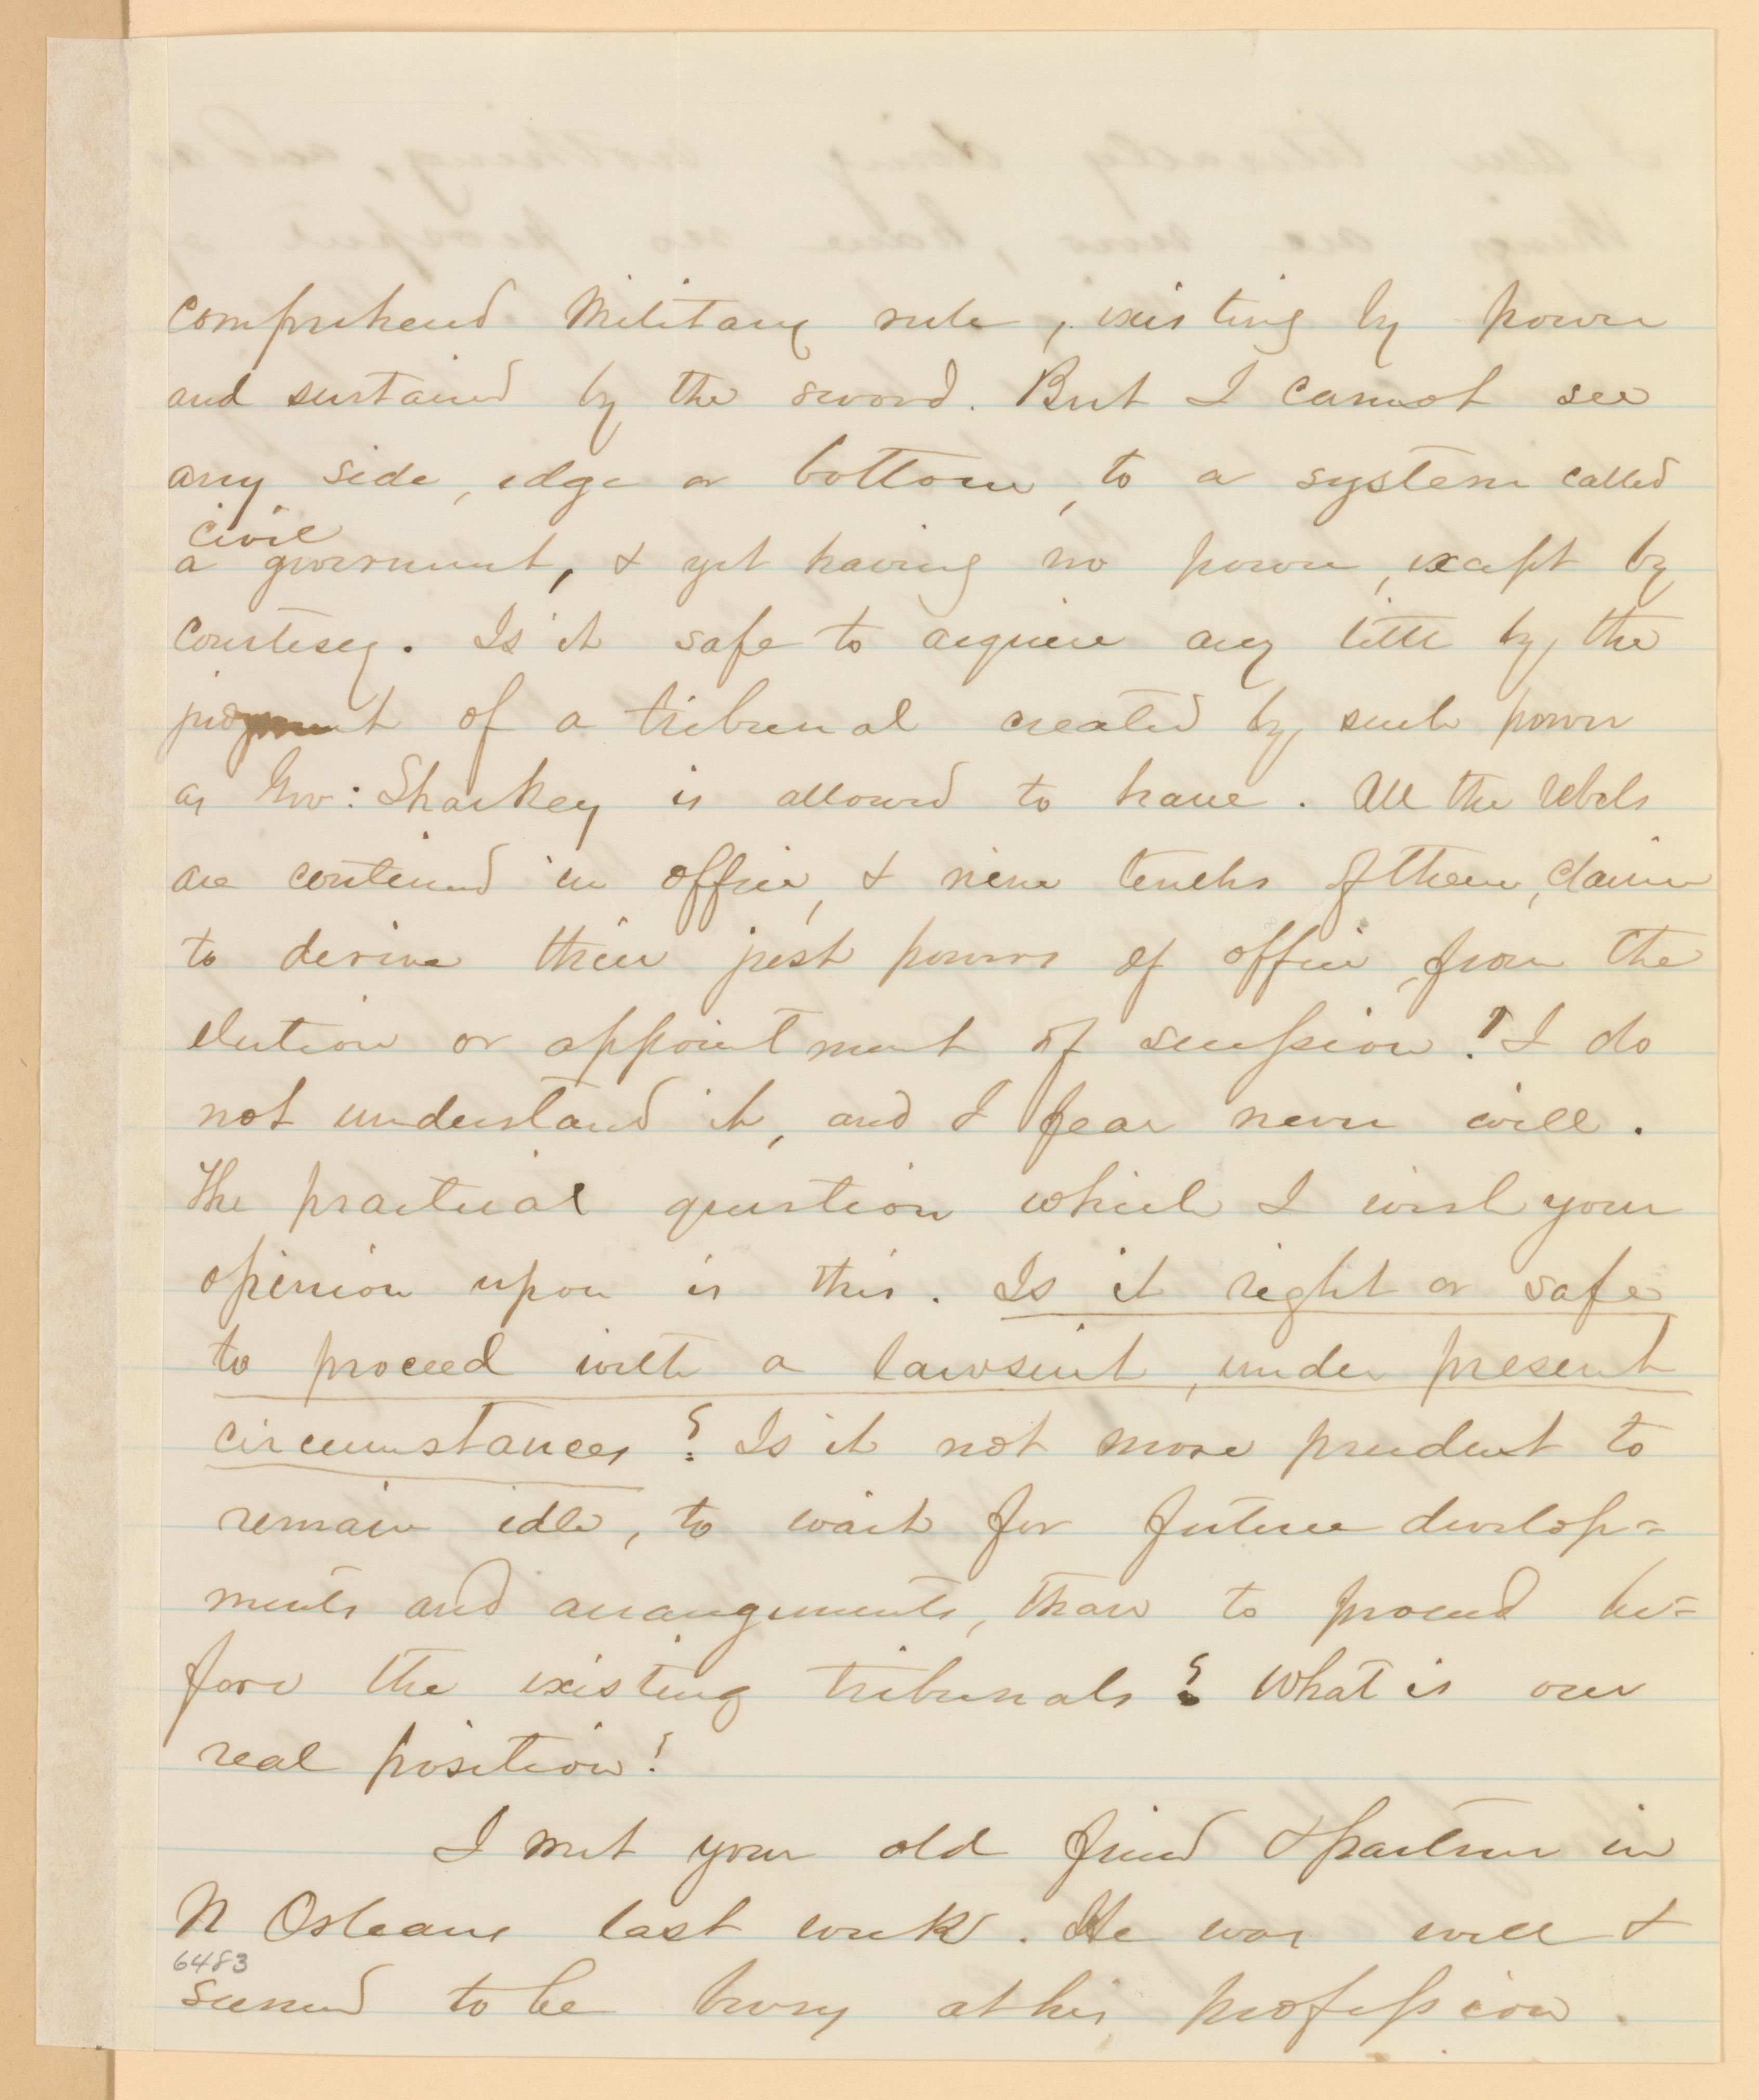 comprehend Military rule, existing by power
and sustained by the sword. But I cannot see
any side, edge or bottom, to a system called
civil
a government, & yet having no power, except by
courtesy. Is it safe to acquire any title by the
judgment of a tribunal created by such power
as Gov: Sharkey is allowed to have. All the rebels
are continued in office, & nine tenths of them, claim
to derive their just powers of office, from the
election or appointment of secession! I do
not understand it, and I fear never will.
The practical question which I wish your
opinion upon is this. Is it right or safe
to proceed with a lawsuit, under present
circumstances? Is it not more prudent to
remain idle, to wait for future develop=
ments and arrangements, than to proceed be=
fore the existing tribunals? What is our
real position!
I met your old friend & partner in
N Orleans last week. He was well &
6483
seemed to be busy at his profession.